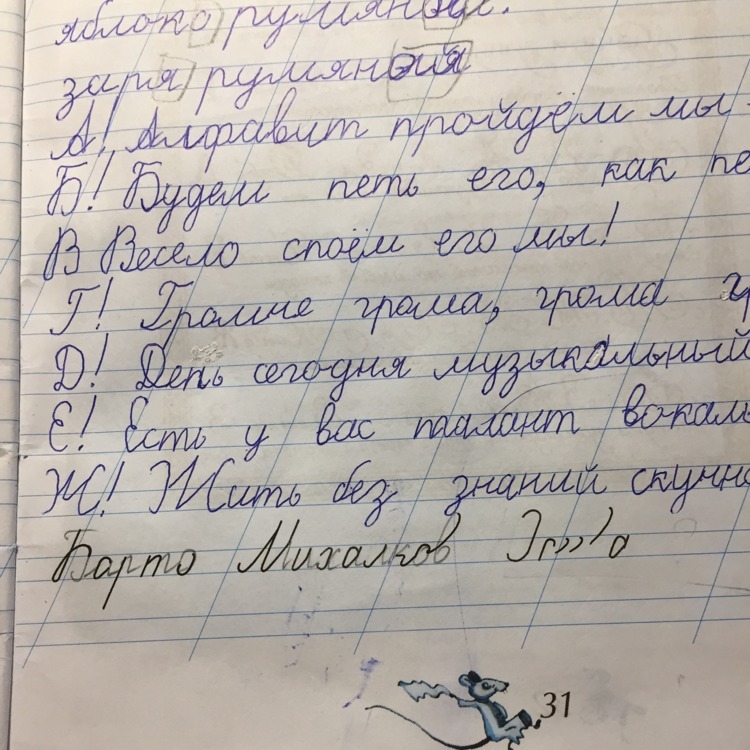 яблоко румяное.
заря румяная
А! Алфавит пройдём мы
Б! Будем петь его, как пе
В Весело споём его мы!
Г! Громче грома, грома
Д! День сегодня музыкальный
Е! Есть у вас талант вокаль
Ж! Жить без знаний скучно
Барто Михалков
31